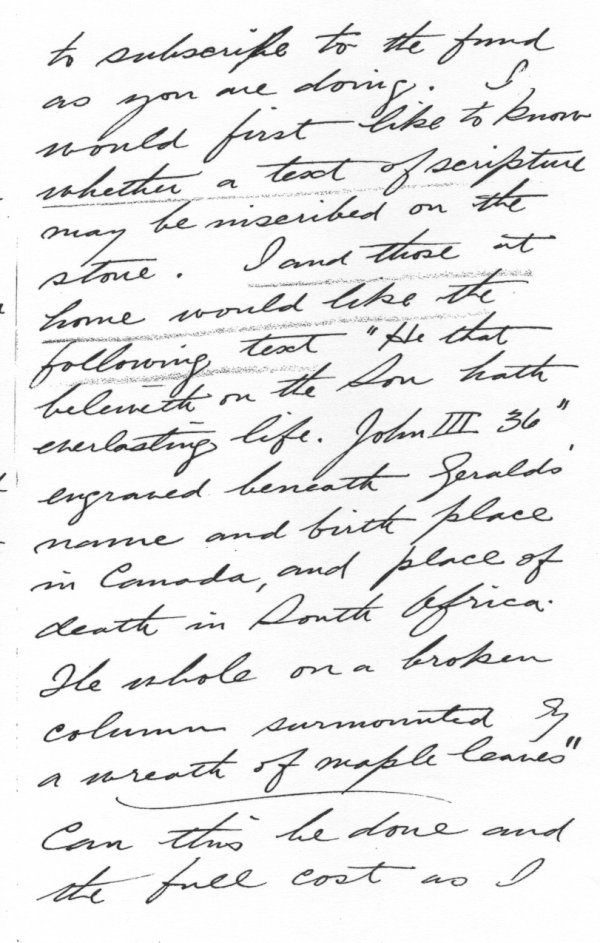 to subscribe to the fund
as you are doing. I
would first like to know
whether a text of scripture
may be inscribed on the
stone. I and those at
home would like the
following text "He that
believeth on the Son hath
everlasting life. John III 36"
engraved beneath Geralds'
name and birth place
in Canada, and place of
death in South Africa.
The whole on a broken
column surmounted by
a wreath of maple leaves"
Can this be done and
the full cost as I